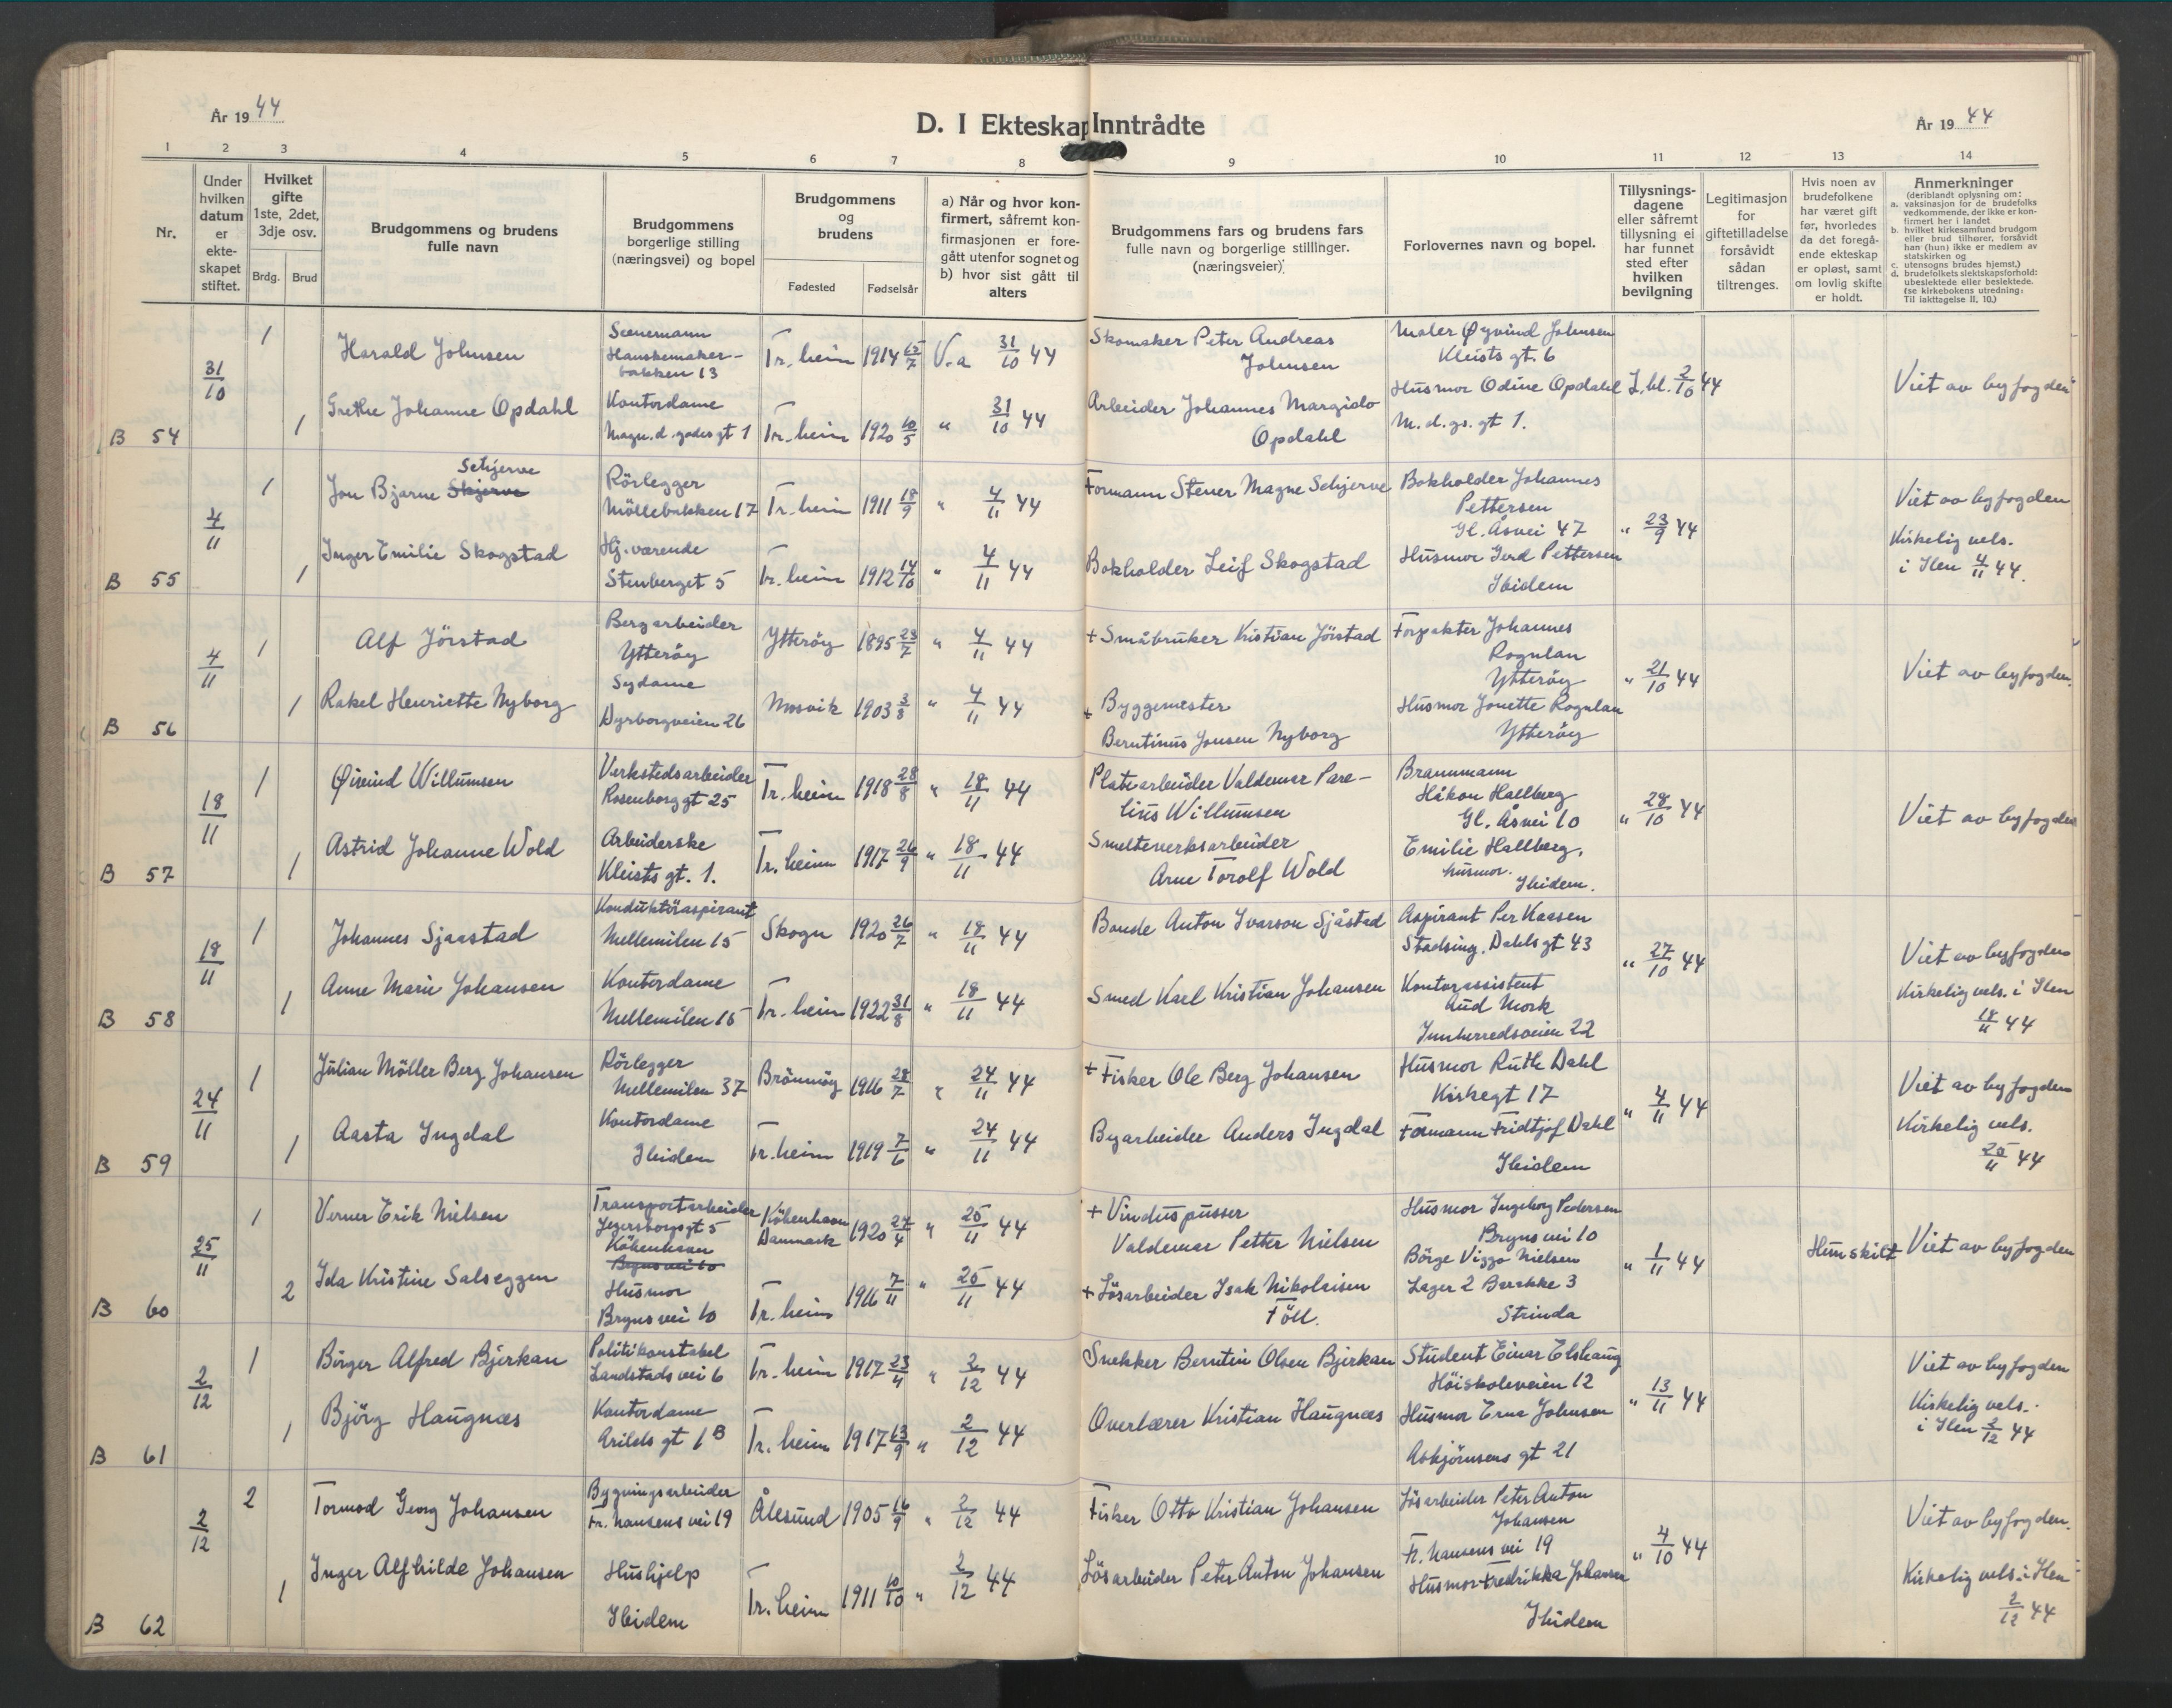 År 1944
D. I Ekteskap Inntrådte
År 1944
1 2 3 4 5 6 7 8 9 10 11 12 13 14
Nr.
Under hvilken datum er ekteskapet stiftet.
Hvilket gifte 1ste, 2det, 3dje osv.
Brdg. Brud
Brudgommens og brudens fulle navn
Brudgommens borgerlige stilling (næringsvei) og bopel
Brudgommens og brudens
Fødested Fødselsår
a) Når og hvor konfirmert, såfremt konfirmasjonen er foregått utenfor sognet og b) hvor sist gått til alters
Brudgommens fars og brudens fars fulle navn og borgerlige stillinger. (næringsveier)
Forlovernes navn og bopel.
Tillysningsdagene eller såfremt tillysning ei har funnet sted efter hvilken bevilgning
Legitimasjon for giftetilladelse forsåvidt sådan tiltrenges.
Hvis noen av brudefolkene har været gift før, hvorledes da det foregående ekteskap er opløst, samt om lovlig skifte er holdt.
Anmerkninger
(deriblandt oplysning om:
a. vaksinasjon for de brudefolks vedkommende, der ikke er konfirmert her i landet
b. hvilket kirkesamfund brudgom eller brud tilhører, forsåvidt han (hun) ikke er medlem av statskirken og
c. utensogns brudes hjemst.)
d. brudefolkets slektskapsforhold: ubeslektede eller beslektede.
(se kirkebokens utredning: Til iakttagelse II, 10.)
B 54
31/10
1
Harald Johnsen
Scenemann
Hanskemaker-
bakken 13
Tr.heim 1914 V.a 31/10 44
Skomaker Peter Andreas
Johnsen
Maler Øyvind Johnsen
Kleists gt. 6
L.bl. 2/10 44
Viet av byfogden
1
Grethe Johanne Opdahl
Kontordame
Magn.d.godes gt 1
Tr.heim 1920 10/5 " 31/10 44
Arbeider Johannes Margido
Opdahl
Husmor Odine Opdahl
M.d.gs.gt 1.
B 55
4/11
1
Jon Bjarne Skjerve
Schjerve
Rörlegger
Möllebakken 17
Tr.heim 1911 18/9 " 4/11 44
Formann Stener Magne Schjerve
Bokholder Johannes
Pettersen
Gl. Åsvei 47
" 23/9 44
Viet av byfogden
Kirkelig vels.
i Ilen 4/11 44.
1
Inger Emilie Skogstad
Hj.værende
Stenberget 5
Tr.heim 1912 14/10 " 4/11 44
Bokholder Leif Skogstad
Husmor Gerd Pettersen
Ibidem
B 56
4/11
1
Alf Jörstad
Bergarbeider
Ytteröy
Ytteröy 1895 23/7 " 4/11 44
+ Småbruker Kristian Jörstad
Forpakter Johannes
Rognlan
Ytteröy
" 21/10 44
Viet av byfogden.
1
Rakel Henriette Nyborg
Sydame
Dyrborgveien 26
Mosvik 1903 3/8 " 4/11 44
+ Byggemester
Berntinus Jonsen Nyborg
Husmor Jonette Rognlan
Ytteröy
B 57
18/11
1
Øivind Willumsen
Verkstedsarbeider
Rosenborg gt 25
Tr.heim 1918 28/8 " 18/11 44
Platearbeider Valdemar Pare-
lius Willumsen
Brannmann
Håkon Hallberg
Gl. Åsvei 10
" 28/10 44
Viet av byfogden
1
Astrid Johanne Wold
Arbeiderske
Kleists gt. 1.
Tr.heim 1917 26/9 " 18/11 44
Smelteverksarbeider
Arne Torolf Wold
Emilie Hallberg,
husmor.
Ibidem.
B 58
18/11
1
Johannes Sjaastad
Konduktöraspirant
Mellemilen 15
Skogn 1920 26/7 " 18/11 44
Bonde Anton Ivarson Sjåstad
Aspirant Per Kaasen
Stadsing. Dahls gt 43
" 27/10 44
Viet av byfogden
Kirkelig vels. i Ilen
18/11 44
1
Anne Marie Johansen
Kontordame
Mellemilen 15
Tr.heim 1922 31/8 " 18/11 44
Smed Karl Kristian Johansen
Kontorassistent
Aud Mork
Innherredsveien 22
B 59
24/11
1
Julian Möller Berg Johansen
Rörlegger
Mellemilen 37
Brönnöy 1916 28/7 " 24/11 44
+ Fisker Ole Berg Johansen
Husmor Ruth Dahl
Kirkegt 17
" 4/11 44
Viet av byfogden
Kirkelig vels.
25/11 44
1
Aasta Ingdal
Kontordame
Ibidem
Tr.heim 1919 7/6 " 24/11 44
Byarbeider Anders Ingdal
Formann Fridtjof Dahl
Ibidem
B 60
25/11
1
Verner Erik Nielsen
Transportarbeider
Jegersborggt 5
Köbenhavn
Bryns vei 10
Köbenhavn
Danmark
1920 27/4 " 25/11 44
+ Vinduspusser
Valdemar Petter Nielsen
Husmor Ingeborg Pedersen
Bryns vei 10
" 1/11 44
Hun skilt
Viet av byfogden
2
Ida Kristine Salseggen
Husmor
Bryns vei 10
Tr.heim 1916 7/11 " 25/11 44
+ Lösarbeider Isak Nikolaisen
Föll.
Börge Viggo Nielsen
Lager 2 Barakke 3
Strinda
B 61
2/12
1
Birger Alfred Bjerkan
Politikonstabel
Landstads vei 6
Tr.heim 1917 23/11 " 2/12 44
Snekker Berntin Olsen Bjerkan
Student Einar Elshaug
Höiskoleveien 12
" 13/11 44
Viet av byfogden
Kirkelig vels.
i Ilen 2/12 44
1
Björg Haugnæs
Kontordame
Arilds gt 1 B
Tr.heim 1917 13/9 " 2/12 44
Overlærer Kristian Haugnæs
Husmor Erna Johnsen
Asbjörnsens gt 21
B 62
2/12
2
Tormod Georg Johansen
Bygningsarbeider
Fr. Nansens vei 19
Ålesund 1905 16/9 " 2/12 44
Fisker Otto Kristian Johansen
Lösarbeider Peter Anton
Johansen
Fr. Nansens vei 19
" 4/10 44
Viet av byfogden.
Kirkelig vels. i Ilen
2/12 44
1
Inger Alfhilde Johansen
Hushjelp
Ibidem
Tr.heim 1911 10/10 " 2/12 44
Lösarbeider Peter Anton Johansen
Husmor Fredrikka Johansen
Ibidem